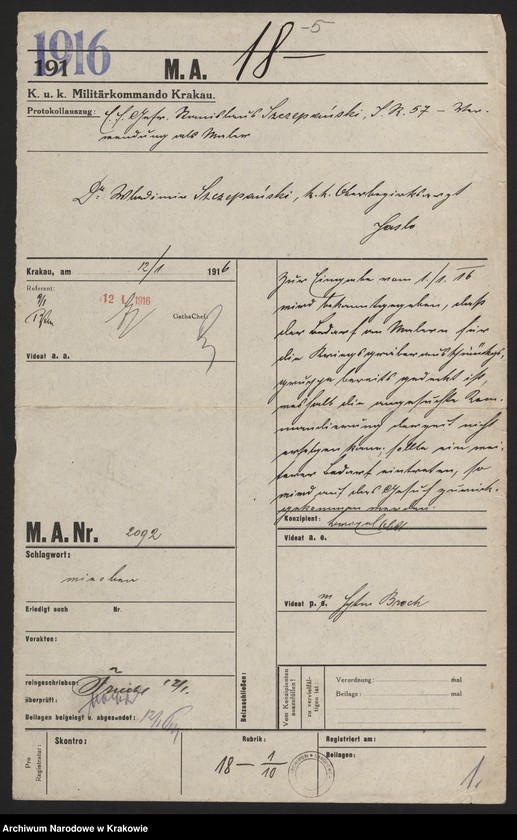 1916
191
M. A.
18 — -5
K. u. k. Militärkommando Krakau.
Protokollauszug: E. F. Gefr. Stanislaus Szczepański, I. R. 57 – Ver-
wendung als Maler
Dr. Wladimir Szczepański, k. k. Oberbezirksarzt
Jaslo
Krakau, am 12/1 1916
Referent:
12 I. 1916
GsthsChef:
Videat a. a.
Zur Eingabe vom 1./1. 16
wird bekanntgegeben, daß
der Bedarf an Malern für
die Kriegsgräberausschmückgs.
gruppe bereits gedeckt ist,
weshalb die angesuchte Kom-
mandierung derzeit nicht
erfolgen kann; sollte ein wei-
terer Bedarf eintreten, so
wird auf das Gesuch zurück-
gekommen werden.
M. A. Nr. 2092
Schlagwort:
wie oben
Erledigt auch
Nr.
Vorakten:
reingeschrieben: 12/1.
überprüft:
Beilagen beigelegt u. abgesendet: 12/1
Konzipient:
Videat a. e.
Videat p. m. Hptm Broch
Beizuschließen:
Vom Konzipienten auszufüllen!
zu vervielfäl-
tigen ist:
Verordnung: mal
Beilage: mal
Pro Registratur:
Skontro:
Rubrik:
18 — 1/10
Registriert am:
Beilagen:
1.
Archiwum Narodowe w Krakowie